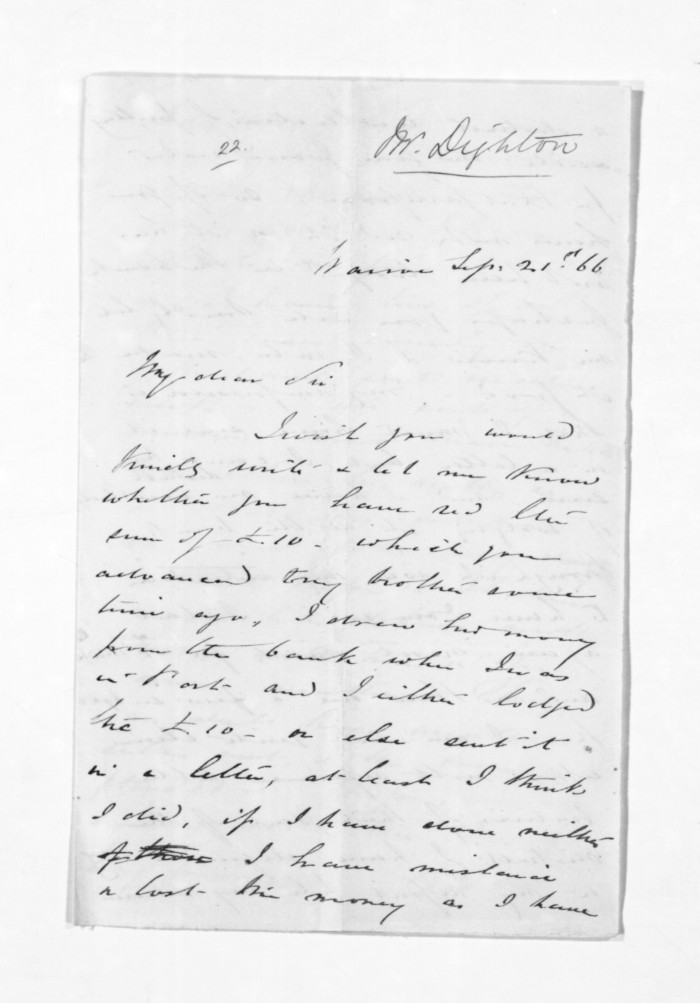 22.
Mr. Deighton
Wairoa Sep: 21st 66
My dear Sir
I wish you would
kindly write & let me know
whether you have recd the
sum of £10 - which you
advanced to my brother some
time ago, I drew his money
from the bank when I was
in Port - and I either lodged
the £10 - or else sent it
in a letter, at least I think
I did, if I have done neither
I have mislaid
or lost the money as I have